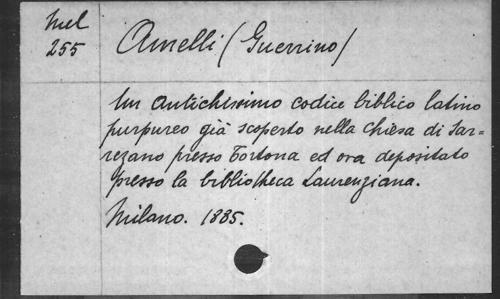 Mel
255
Amelli (Guerrino)
Un antichissimo codice biblico latino
purpureo già scoperto nella chiesa di Sar=
rezano presso Tortona ed ora depositato
presso la bibliotheca Laurenziana.
Milano. 1885.